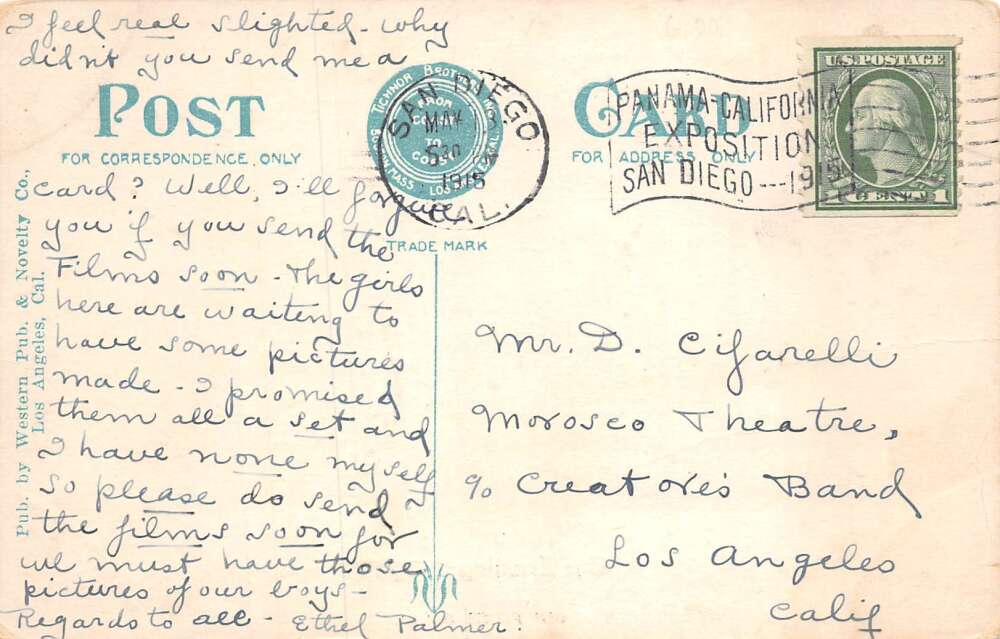 I feel real slighted - why
didn't you send me a
POST CARD
FOR CORRESPONDENCE ONLY
FOR ADDRESS ONLY
TICHNOR BROTHERS INC.
LOS
MASS
SAN DIEGO
MAY 3
530
1915
CAL.
PANAMA-CALIFORNIA
EXPOSITION
SAN DIEGO --- 1915
U.S. POSTAGE
1 CENT 1
TRADE MARK
card? Well, I'll forgive
you if you send the
Films soon - The girls
here are waiting to
have some pictures
made - I promised
them all a set and
I have none myself
so please do send
the films soon for
we must have those
pictures of our boys -
Regards to all - Ethel Palmer.
Mr. D. Cifarelli
Morosco Theatre,
c/o Creatore's Band
Los Angeles
Calif
Pub. by Western Pub. & Novelty Co.,
Los Angeles, Cal.